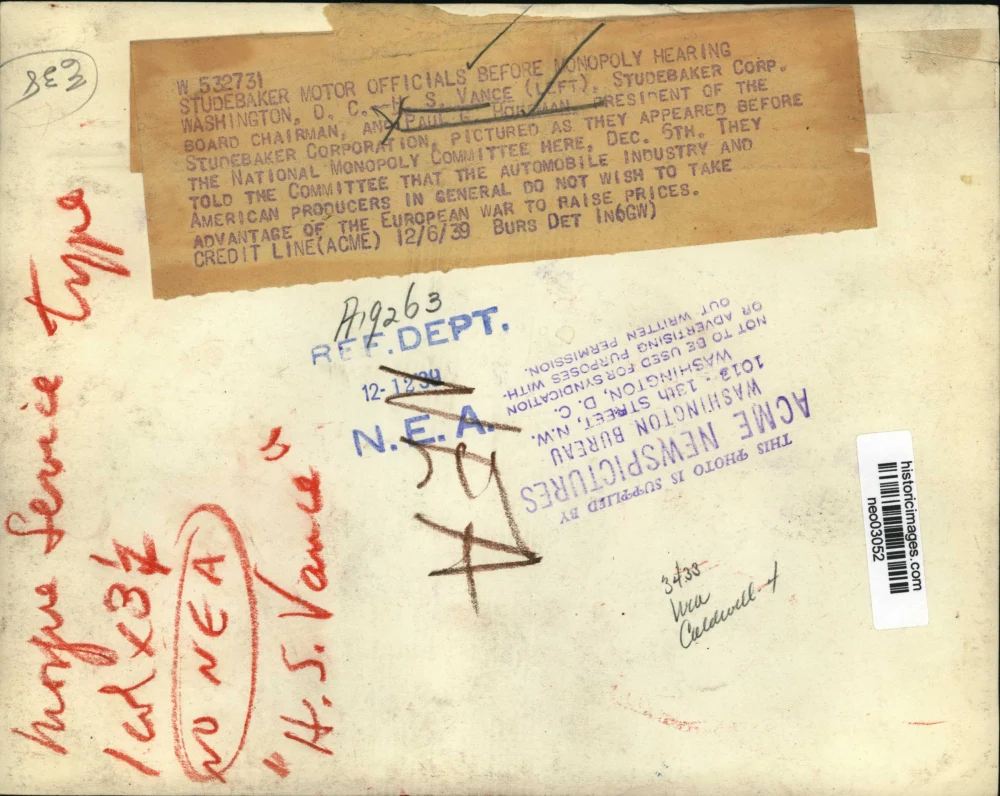 638
W 532731
STUDEBAKER MOTOR OFFICIALS BEFORE MONOPOLY HEARING
WASHINGTON, D. C.--H. S. VANCE (LEFT), STUDEBAKER CORP.
BOARD CHAIRMAN, AND PAUL G. HOFFMAN, PRESIDENT OF THE
STUDEBAKER CORPORATION, PICTURED AS THEY APPEARED BEFORE
THE NATIONAL MONOPOLY COMMITTEE HERE, DEC. 6TH. THEY
TOLD THE COMMITTEE THAT THE AUTOMOBILE INDUSTRY AND
AMERICAN PRODUCERS IN GENERAL DO NOT WISH TO TAKE
ADVANTAGE OF THE EUROPEAN WAR TO RAISE PRICES.
CREDIT LINE(ACME) 12/6/39 BURS DET IN(GW)
A19263
REF. DEPT.
12-12 39
N.E.A.
NEA
THIS PHOTO IS SUPPLIED BY
ACME NEWSPICTURES
WASHINGTON BUREAU
1013 - 13th STREET, N.W.
WASHINGTON, D. C.
TO BE USED FOR SYNDICATION
NOT ADVERTISING PURPOSES WITH-
OR
OUT WRITTEN PERMISSION.
morgue Service type
1 col x 3 1/4
NO NEA
"H.S. Vance"
3433
Caldwell
historicimages.com
neo03052